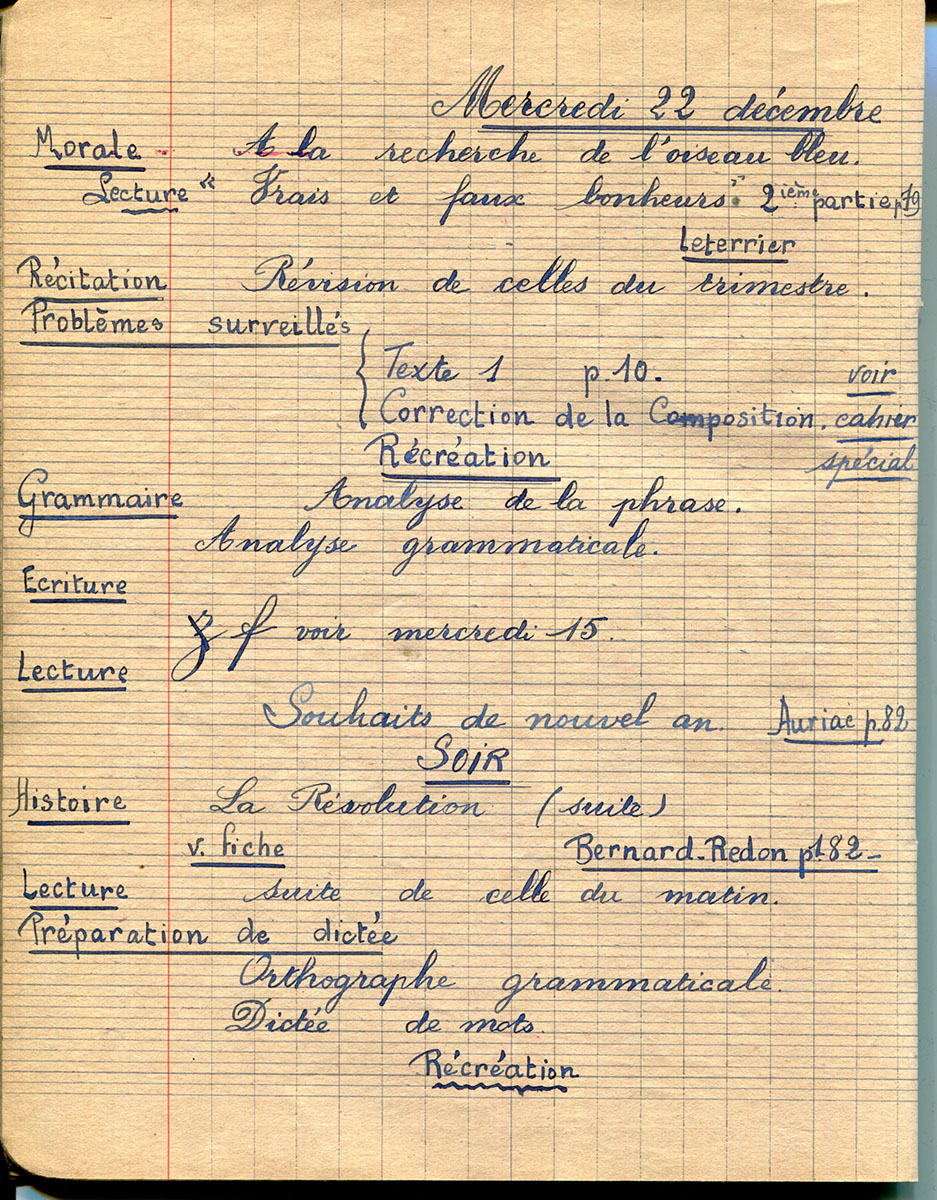 Mercredi 22 décembre
Morale - A la recherche de l'oiseau bleu.
Lecture " Vrais et faux bonheurs" 2ième partie p79
Leterrier
Récitation Révision de celles du trimestre.
Problèmes surveillés
{ Texte 1 p.10. voir
Correction de la Composition. cahier
Récréation spécial
Grammaire Analyse de la phrase.
Analyse grammaticale.
Ecriture
f voir mercredi 15.
Lecture
Souhaits de nouvel an. Auriac p.82
SOIR
Histoire La Révolution (suite)
v. fiche Bernard-Redon p182-
Lecture suite de celle du matin.
Préparation de dictée
Orthographe grammaticale.
Dictée de mots.
Récréation